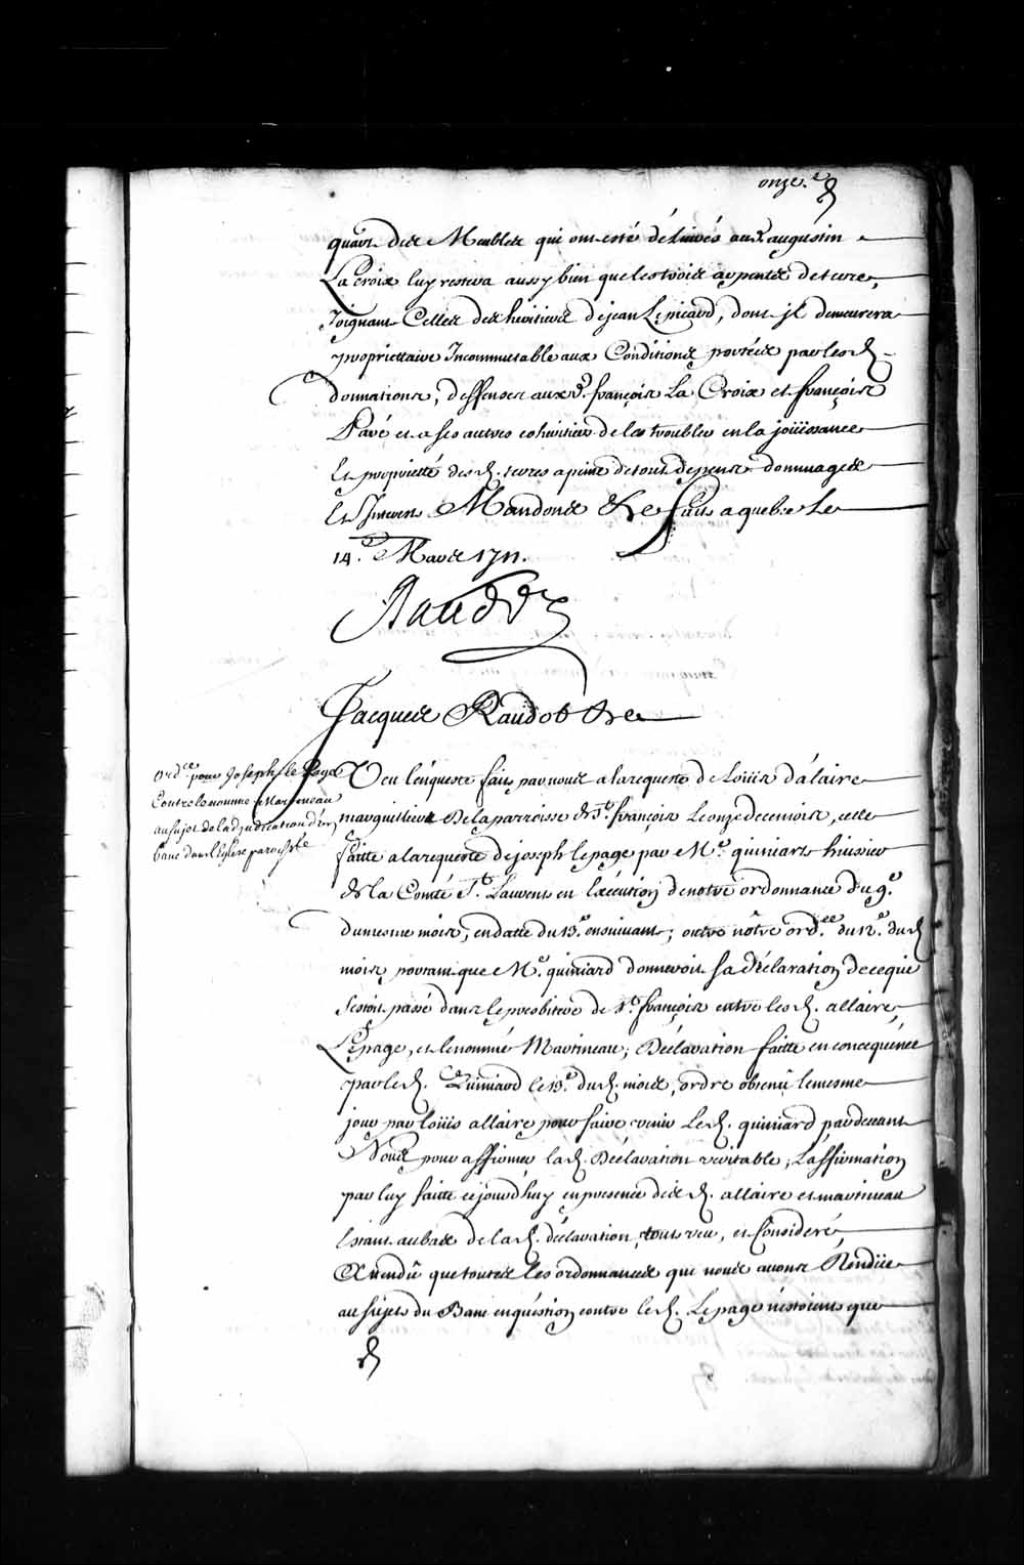 onze.e
quart des Meubles qui ont esté délivrés aux augustin
La Croix luy restera aussy bien que les trois arpents de terre,
Joignant Celles des heritiers de jean Le picard, dont jl demeurera
proprietaire Incommutable aux Conditions portées par les d.
donnations, deffenses aux d. françois La Croix et françoise
Pavé et a ses autres coheritiers de les troubler en la joüissance
Et proprietté des d. terres a peine de tous depens dommages
Et Jnterests Mandons &c fait a quebec le
14.e Mars 1711.
Raudot
Jacques Raudot &c
ord.ce pour Joseph le Page
Contre le nomme Martineau
au sujet de la djudication d'un
banc dans l'Eglise paroissle
Veu l'enqueste faite par nous a la requeste de Loüis d'alaire
marguillier de la parroisse de St. françois le onze decembre, celle
faitte a la requeste de joseph le page par Me. quiniart huissier
de la Comté St. Laurent en Execution de notre ordonnance du 9.e
du mesme mois, en datte du 13.e ensuivant; autre nôtre ord.ce du 12.e dud
mois portant que Me. quiniard donneroit sa déclaration de ce qui
s'estoit passé dans le presbitere de St. françois entre les d. allaire,
Lepage, et le nommé Martineau; Déclaration faitte en consequence
par le d. Quiniard le 19.e du d. mois, ordre obtenu le mesme
jour par loüis allaire pour faire venir le d. quiniard pardevant
Nous pour affirmer la d. Déclaration veritable, L'affirmation
par luy faitte cejourd'huy en presence des d. allaire et martineau
Estant au bas de la d. déclaration, tout veu, et Consideré,
Attendu que toutes les ordonnances que nous avons Rendües
au sujet du Banc en question contre le d. Lepage n'estoient que